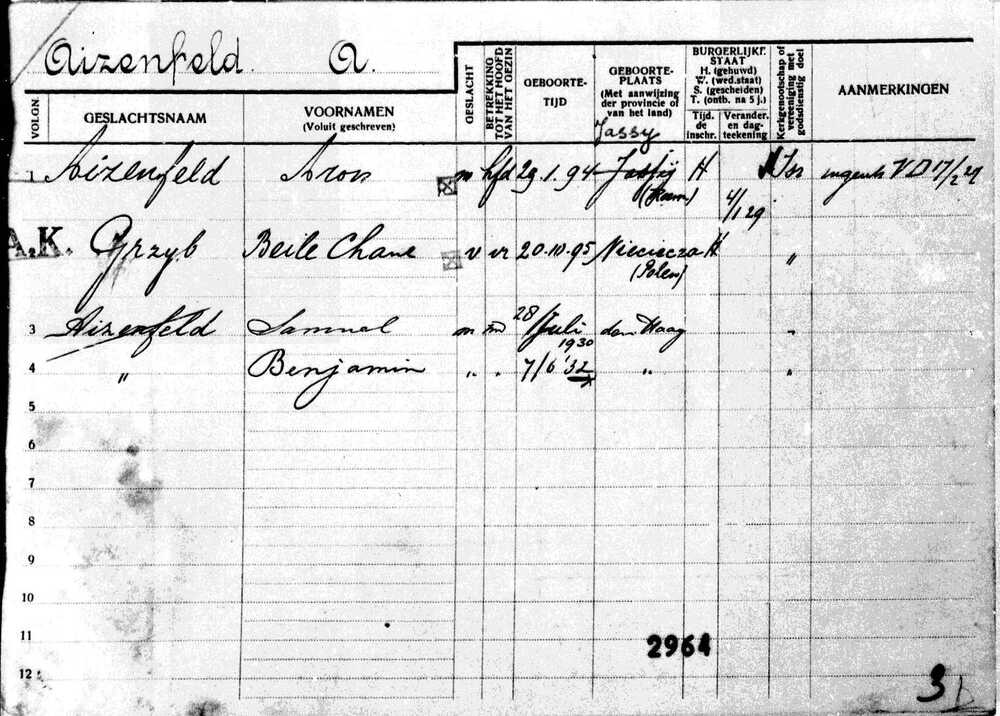 Aizenfeld. A.
VOLGN.
GESLACHTSNAAM
VOORNAMEN
(Voluit geschreven)
GESLACHT
BETREKKING
TOT HET HOOFD
VAN HET GEZIN
GEBOORTE-
TIJD
GEBOORTE-
PLAATS
(Met aanwijzing
der provincie of
van het land)
Jassy
BURGERLIJKE
STAAT
H. (gehuwd)
W. (wed.staat)
S. (gescheiden)
T. (ontb. na 5 j.)
Tijd.
de
inschr.
Verander.
en dag-
teekening
Kerkgenootschap of
vereeniging met
godsdienstig doel
AANMERKINGEN
1 Aizenfeld Aron m hfd 29.1.94 Jassij H Isr V D 17/2 27
(Roem) 4/1 29
A.K. Grzyb Beile Chane v vr 20.10.95 Nieciecza H "
(Polen)
3 Aizenfeld Samuel m zn 28/Juli 1930 den Haag "
4 " Benjamin " " 7/6 '32 " "
5
6
7
8
9
10
11
2964
12
3